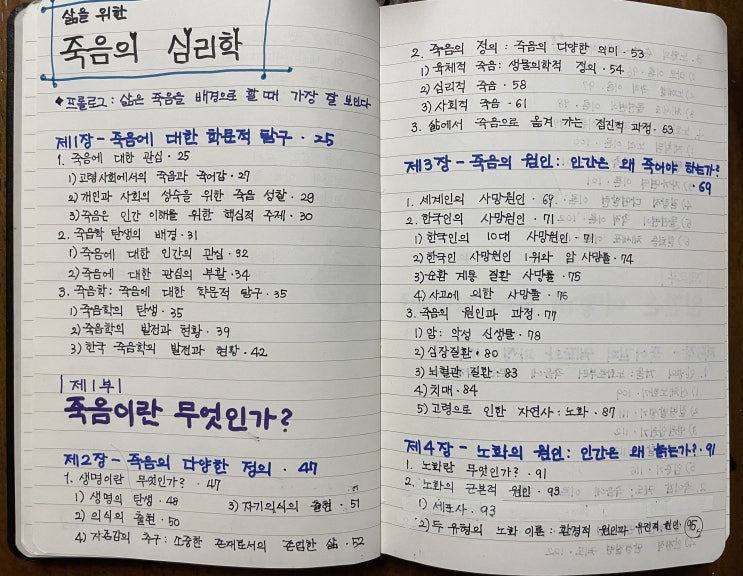 삶을 위한
죽음의 심리학
◆프롤로그: 삶은 죽음을 배경으로 할 때 가장 잘 보인다
제1장 - 죽음에 대한 학문적 탐구 · 25
1. 죽음에 대한 관심 · 25
1) 고령사회에서의 죽음과 죽어감 · 27
2) 개인과 사회의 성숙을 위한 죽음 성찰 · 29
3) 죽음은 인간 이해를 위한 핵심적 주제 · 30
2. 죽음학 탄생의 배경 · 31
1) 죽음에 대한 인간의 관심 · 32
2) 죽음에 대한 관심의 부활 · 34
3. 죽음학: 죽음에 대한 학문적 탐구 · 35
1) 죽음학의 탄생 · 35
2) 죽음학의 발전과 현황 · 39
3) 한국 죽음학의 발전과 현황 · 42
|제1부|
죽음이란 무엇인가?
제2장 - 죽음의 다양한 정의 · 47
1. 생명이란 무엇인가? · 47
1) 생명의 탄생 · 48
2) 의식의 출현 · 50
3) 자기의식의 출현 · 51
4) 자존감의 추구: 소중한 존재로서의 존엄한 삶 · 52
2. 죽음의 정의 : 죽음의 다양한 의미 · 53
1) 육체적 죽음: 생물의학적 정의 · 54
2) 심리적 죽음 · 58
3) 사회적 죽음 · 61
3. 삶에서 죽음으로 옮겨 가는 점진적 과정 · 63
제3장 - 죽음의 원인: 인간은 왜 죽어야 하는가?
· 69
1. 세계인의 사망원인 · 69
2. 한국인의 사망원인 · 71
1) 한국인의 10대 사망원인 · 71
2) 한국인 사망원인 1위와 암 사망률 · 74
3) 순환 계통 질환 사망률 · 75
4) 사고에 의한 사망률 · 76
3. 죽음의 원인과 과정 · 77
1) 암: 악성 신생물 · 78
2) 심장질환 · 80
3) 뇌혈관 질환 · 83
4) 치매 · 84
5) 고령으로 인한 자연사: 노화 · 87
제4장 - 노화의 원인: 인간은 왜 늙는가? · 91
1. 노화란 무엇인가? · 91
2. 노화의 근본적 원인 · 93
1) 세포사 · 93
2) 두 유형의 노화 이론 : 환경적 원인과 유전적 원인 · 95